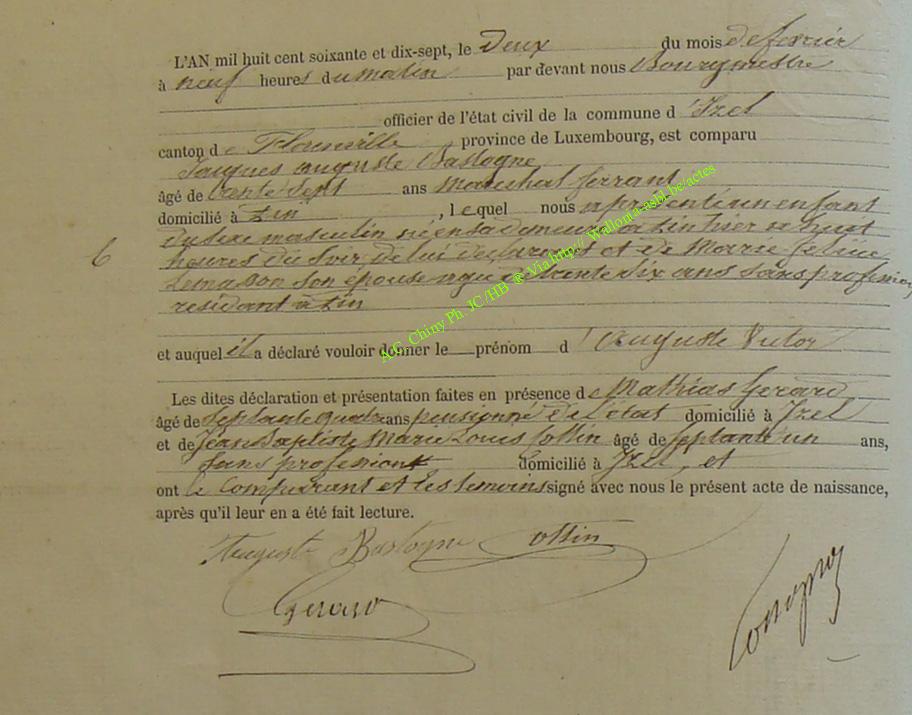 L'AN mil huit cent soixante et dix-sept, le Deux du mois de fevrier
à neuf heures du matin par devant nous Bourgmestre
officier de l'état civil de la commune d'Izel
canton de Florenville province de Luxembourg, est comparu
Jacques auguste Bastogne
âgé de trente Sept ans Marechal ferrant
domicilié à Pin, lequel nous a présenté un enfant
du sexe masculin né en sa demeure à Pin hier à huit
6 heures du Soir, de lui declarant et de Marie
Lemasson son épouse agée trente Six ans sans profession
residant a Pin
et auquel il a déclaré vouloir donner le prénom d'Auguste Victor
Les dites déclaration et présentation faites en présence de Mathias Gerard
âgé de Septante quatre ans pensionné de l'état domicilié à Izel
et de Jean Baptiste Marie Louis Collin âgé de Septante un ans,
Sans profession domicilié à Izel, et
ont le Comparant et les temoins signé avec nous le présent acte de naissance,
après qu'il leur en a été fait lecture.
Auguste Bastogne Collin
Gerard
A.G. Chiny Ph. JC/HB ® Via http:// Wallonia-asbl.be/actes